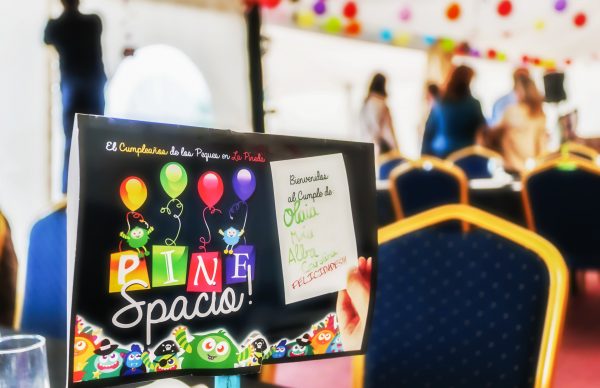 El Cumpleaños de los Peques en La Pineda
PINE
Spacio!
Bienvenidos
al Cumple de
Olivia
Alba
FELICIDADES!!!